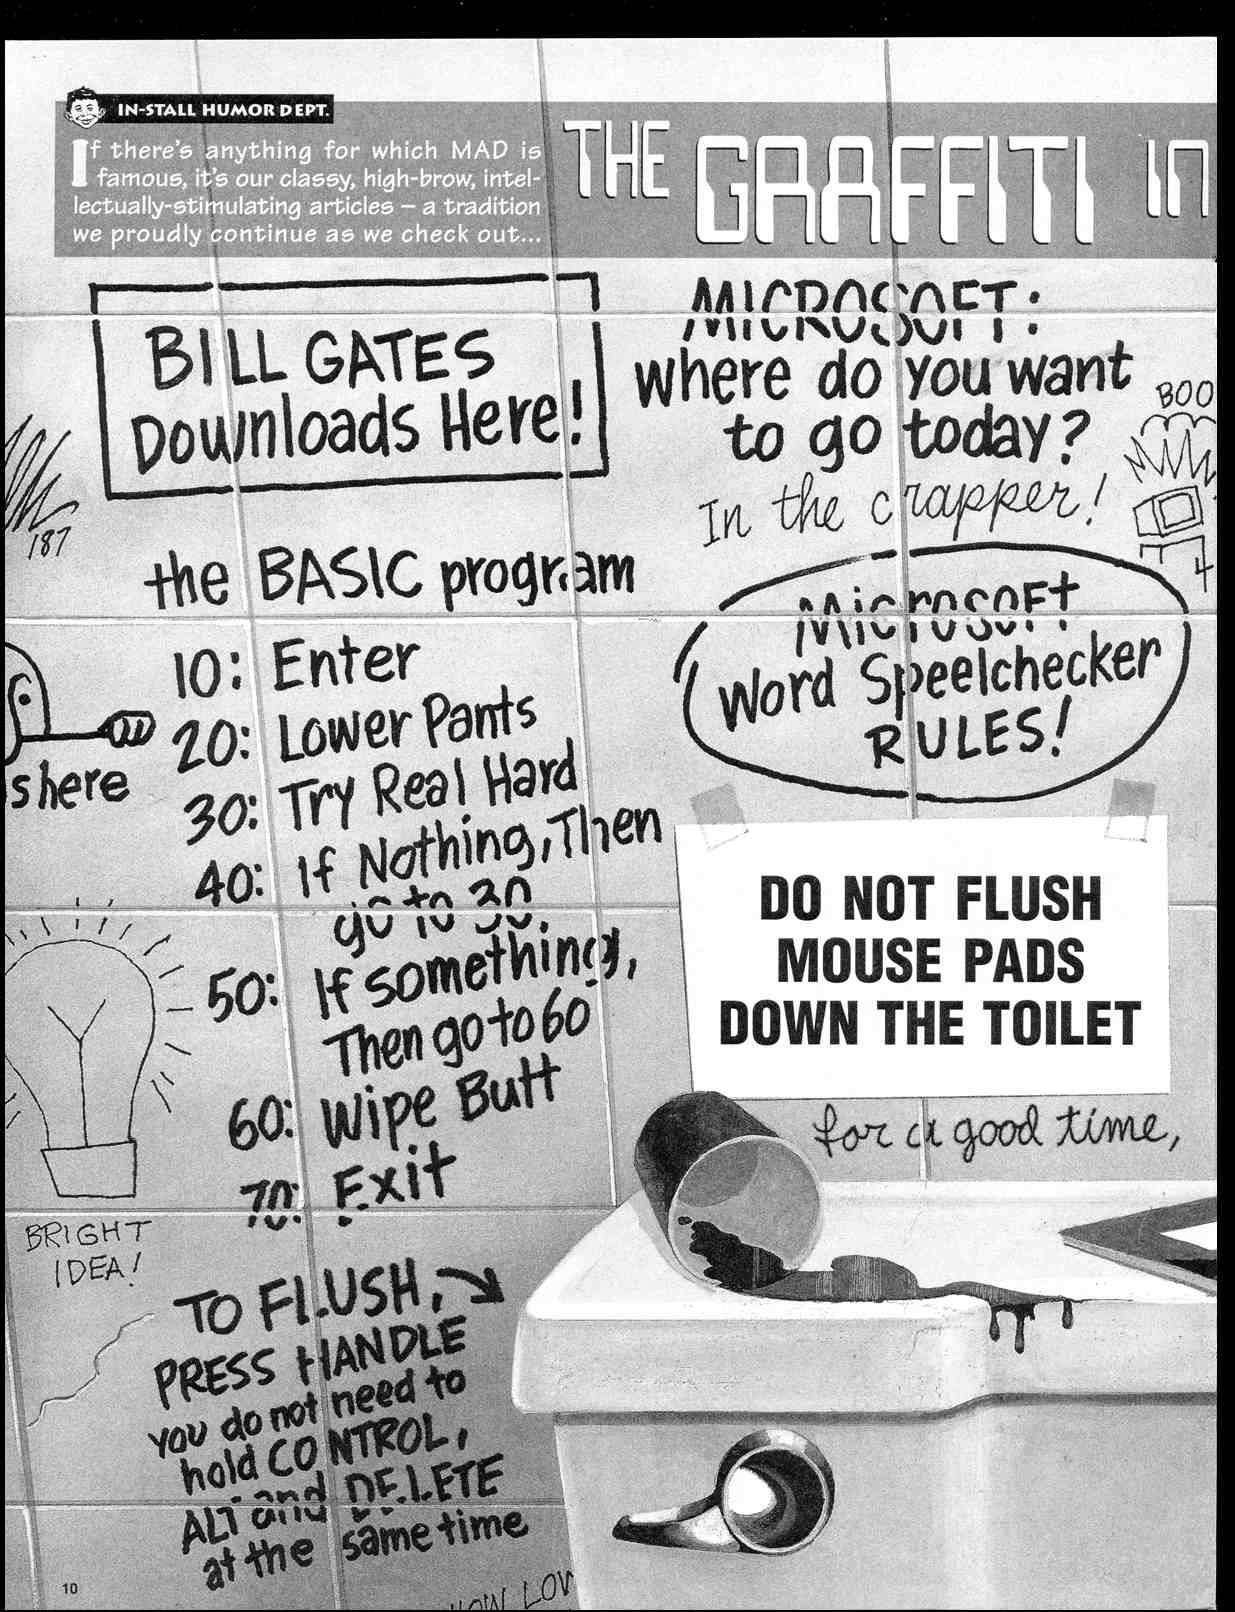 IN-STALL HUMOR DEPT.
If there's anything for which MAD is
famous, it's our classy, high-brow, intel-
lectually-stimulating articles – a tradition
we proudly continue as we check out...
THE GRAFFITI IN
BILL GATES
Downloads Here!
MICROSOFT:
where do you want
to go today?
In the crapper!
BOO
187
the BASIC program
10: Enter
20: Lower Pants
30: Try Real Hard
40: If Nothing, Then
go to 30.
50: If something,
Then go to 60
60: Wipe Butt
70: Exit
Microsoft
Word Speelchecker
RULES!
s here
DO NOT FLUSH
MOUSE PADS
DOWN THE TOILET
for a good time,
BRIGHT
IDEA!
TO FLUSH,
PRESS HANDLE
you do not need to
hold CONTROL,
ALT and DELETE
at the same time
HOW LOW
10